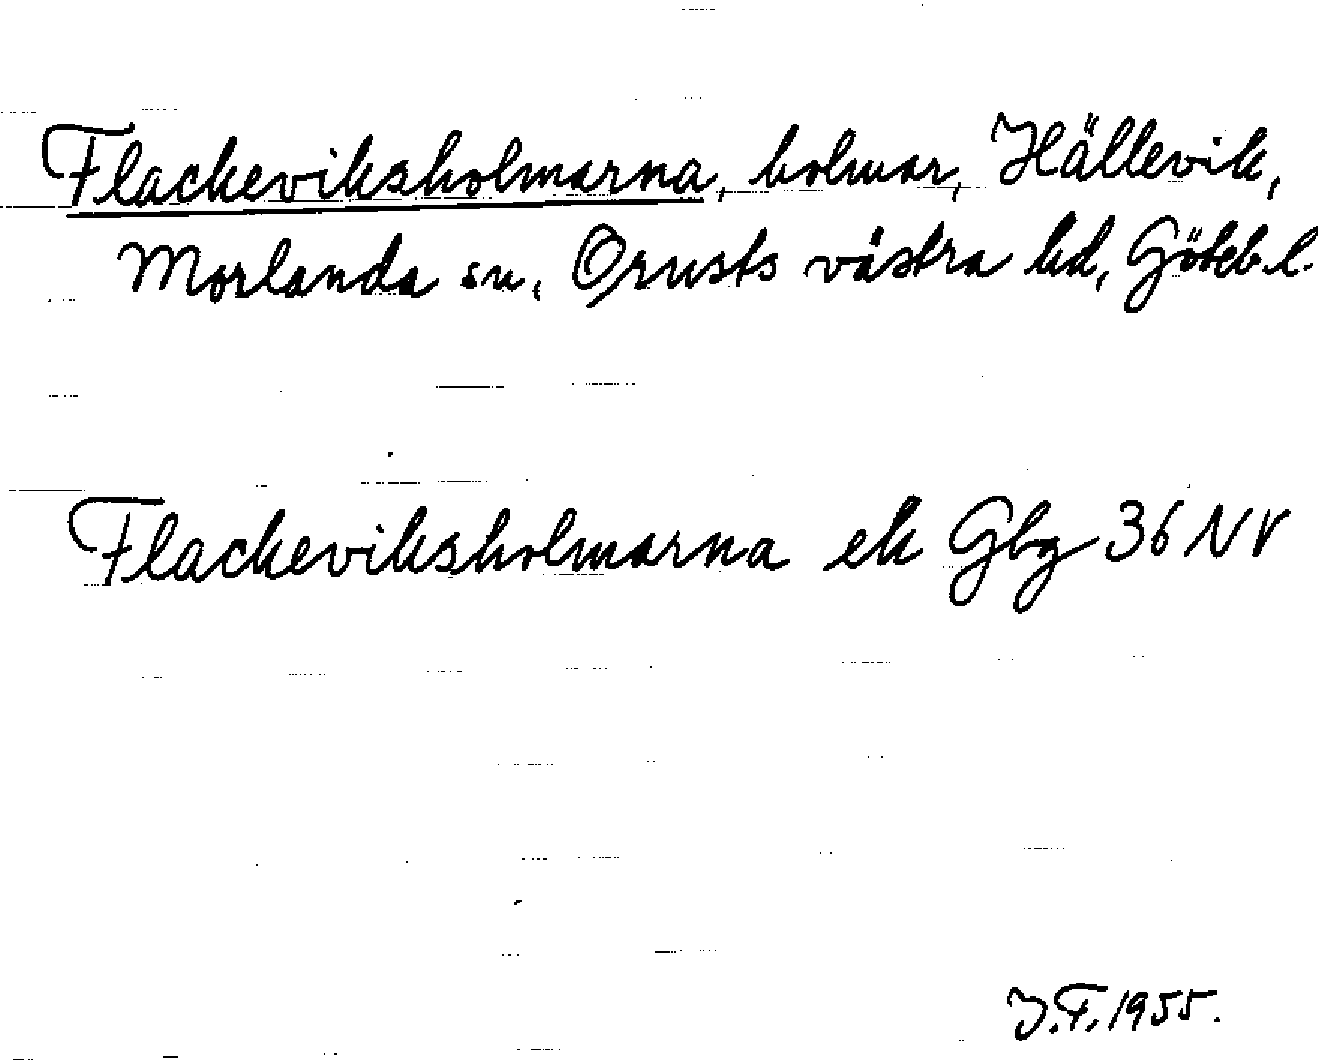 Flackeviksholmarna, holmar, Hällevik,
Morlanda sn, Orusts västra hd, Göteb.l.
Flackeviksholmarna ek Gbg 36 NV
J.F. 1955.